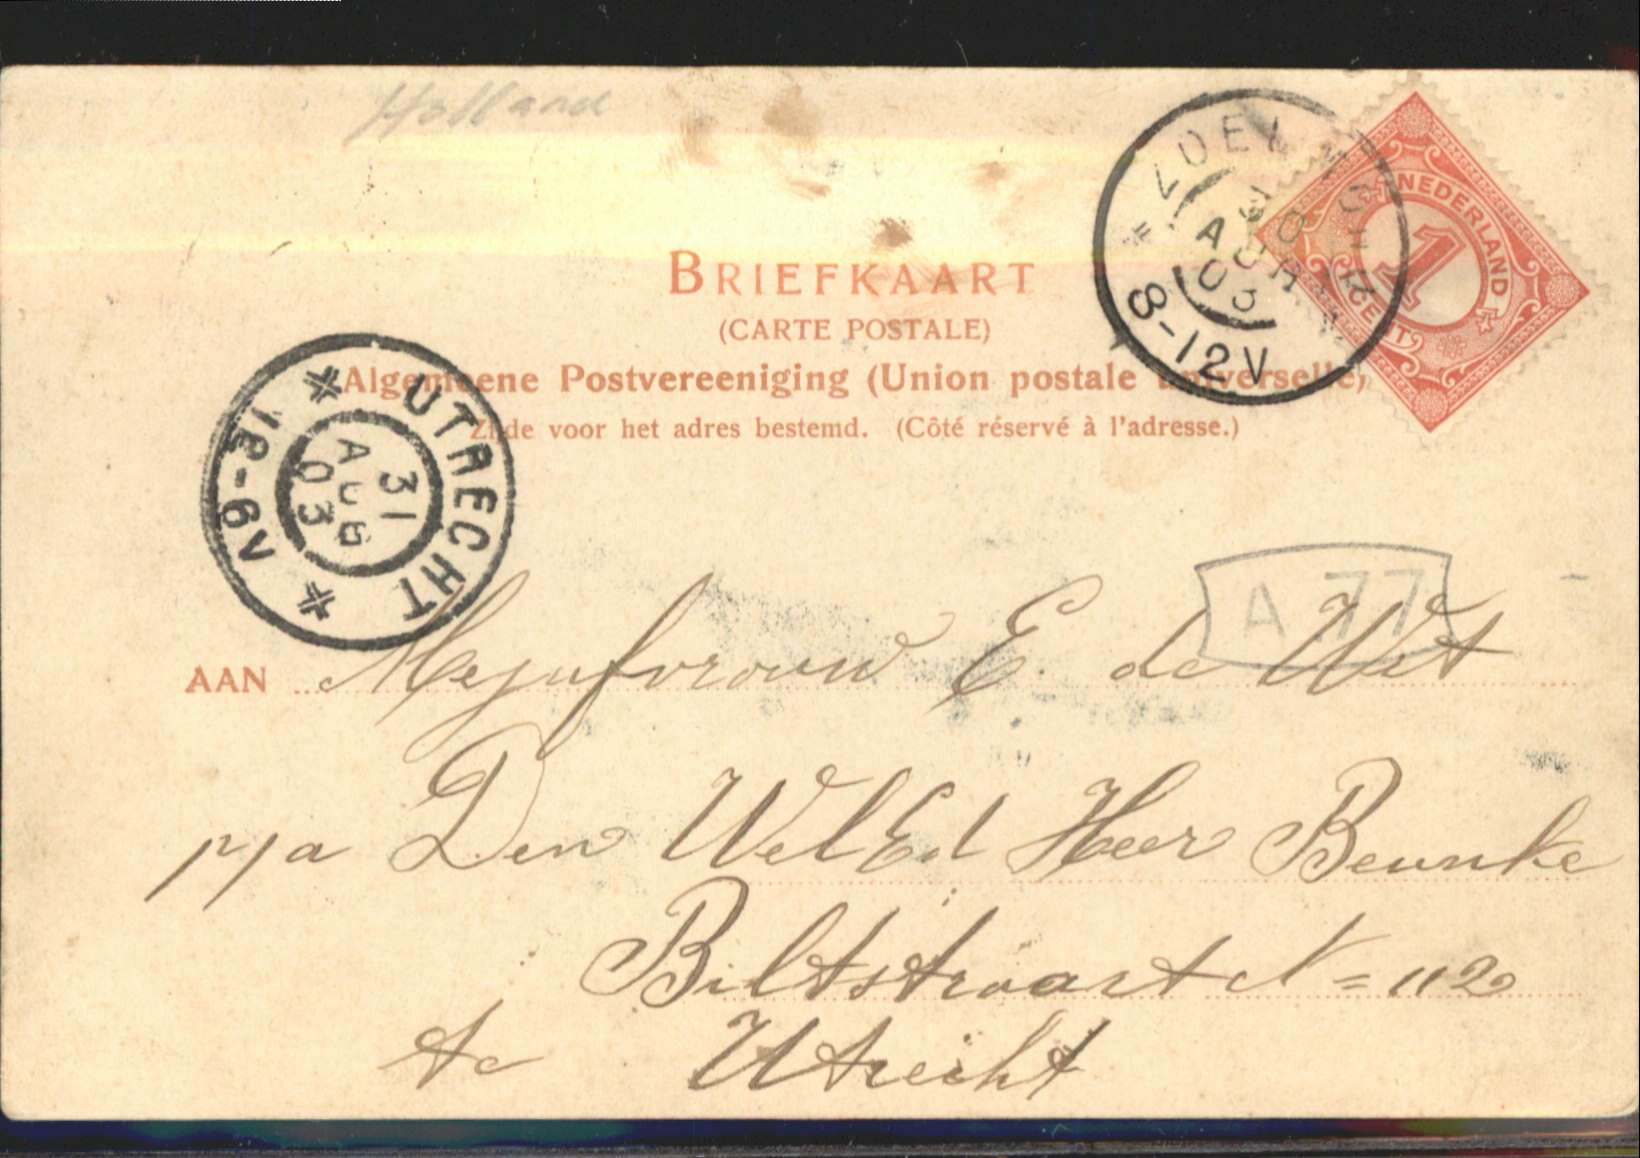 Holland
NEDERLAND
1
CENT
30
AUG
03
8-12V
BRIEFKAART
(CARTE POSTALE)
Algemeene Postvereeniging (Union postale universelle)
Zijde voor het adres bestemd. (Côté réservé à l'adresse.)
UTRECHT
31
AUG
03
12-6V
A 77
AAN Mejufvrouw E. de Wet
p/a Den WelEd Heer Beunke
Biltstraat No 112
te Utrecht